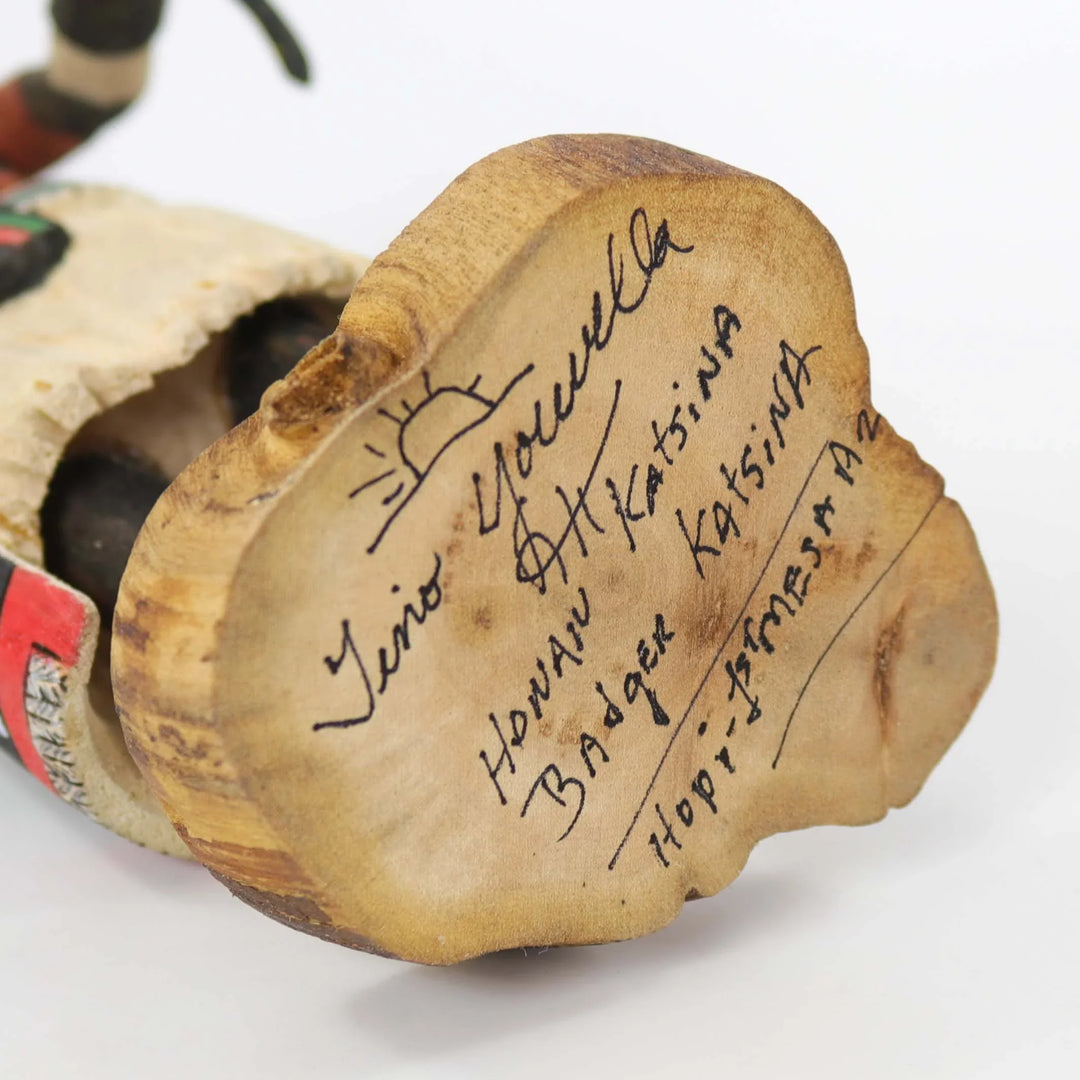 Tino Youvella
HONAN KAtSiNA
BAdgER KAtSiNA
Hopi-1ST MESA AZ